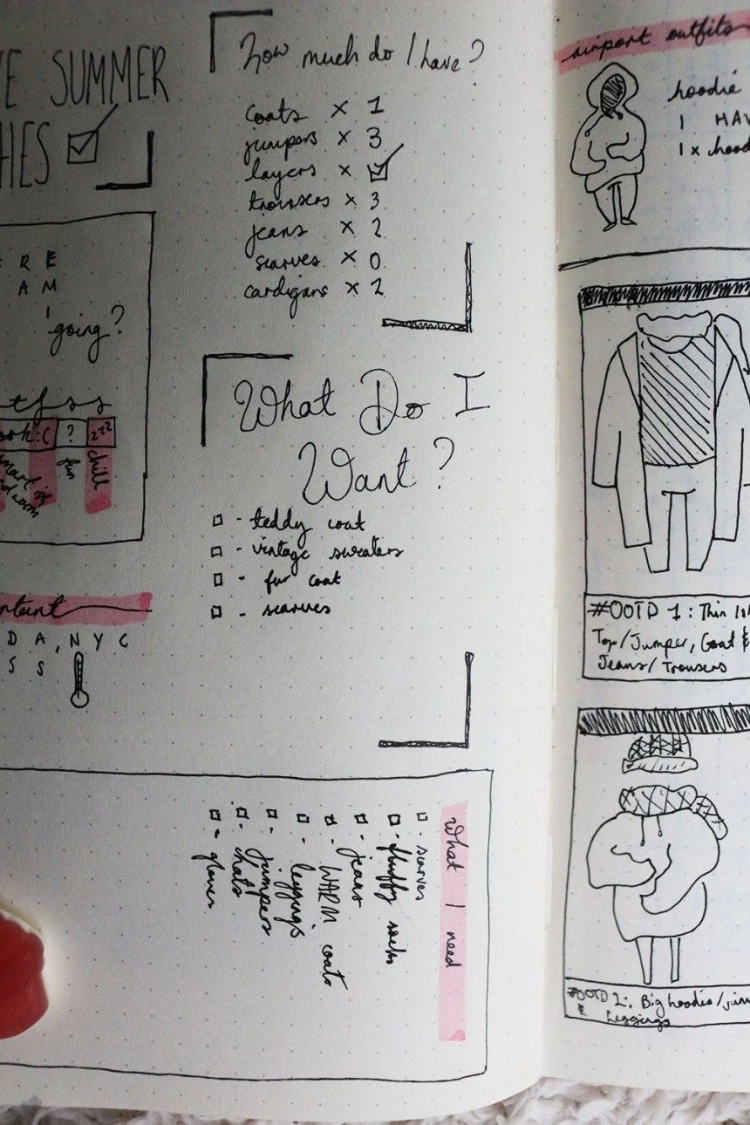 E SUMMER
HES
RE
AM
I
going?
ook :( ? zzz
fun chill
ntent
DA, NYC
SS
How much do I have?
coats x 1
jumpers x 3
layers x
trousers x 3
jeans x 2
scarves x 0
cardigans x 2
What Do I
Want?
- teddy coat
- vintage sweaters
- fur coat
- scarves
What I need
- scarves
- fluffy socks
- jeans
- WARM coats
- leggings
- jumpers
- hats
- gloves
airport outfits
hoodie
I HAV
1 x hood
#OOTD 1: Thin
Top/Jumper, Coat &
Jeans/Trousers
#OOTD 2: Big hoodie/jum
& Leggings